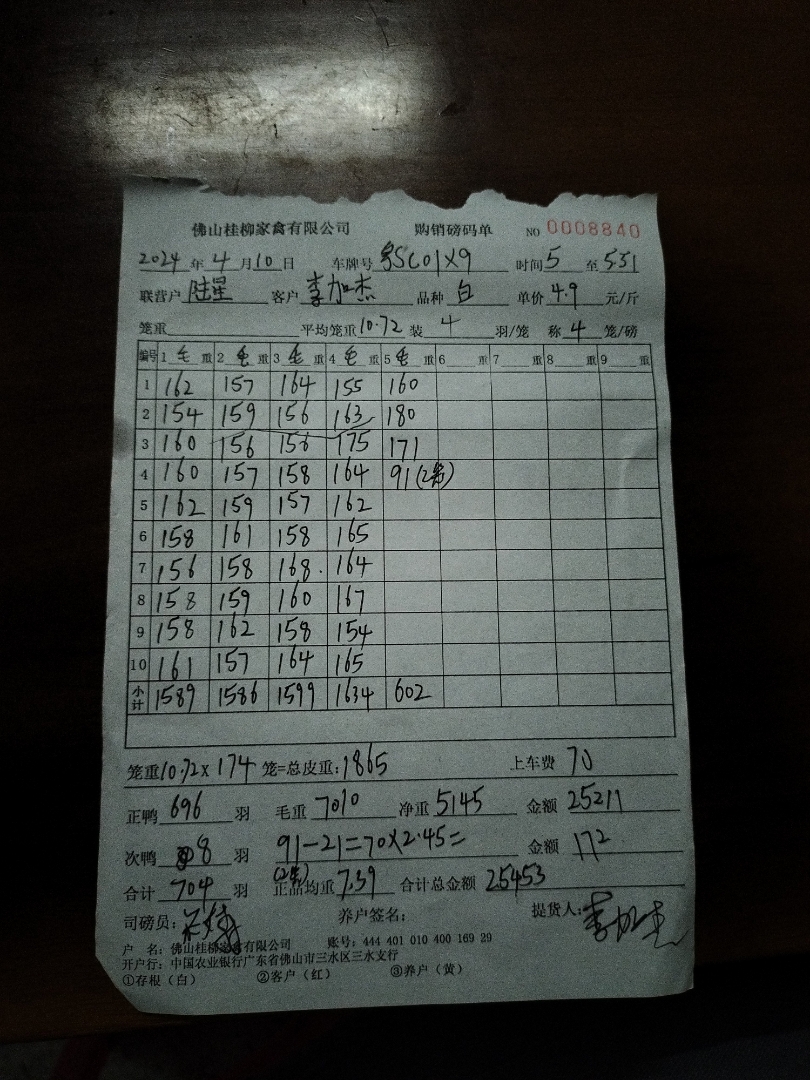 佛山桂柳家禽有限公司 购销磅码单 NO 0008840
2024 年 4 月 10 日 车牌号 SC01X9 时间 5 至 5:51
联营户 陆星 客户 李加杰 品种 白 单价 4.9 元/斤
笼重 平均笼重 10.72 装 4 羽/笼 称 4 笼/磅
编号 1 毛 重 2 毛 重 3 毛 重 4 毛 重 5 毛 重 6 重 7 重 8 重 9 重
1 162 157 164 155 160
2 154 159 156 163 180
3 160 156 156 175 171
4 160 157 158 164 91(2笼)
5 162 159 157 162
6 158 161 158 165
7 156 158 168 164
8 158 159 160 167
9 158 162 158 154
10 161 157 164 165
小计 1589 1586 1599 1634 602
笼重 10.72 x 174 笼=总皮重: 1865 上车费 70
正鸭 696 羽 毛重 7010 净重 5145 金额 25211
次鸭 8 羽 91-21=70×2.45= 金额 172
(2笼)
合计 704 羽 正品均重 7.39 合计总金额 25453
司磅员: 养户签名: 提货人: 李加杰
户 名: 佛山桂柳家禽有限公司 账号: 444 401 010 400 169 29
开户行: 中国农业银行广东省佛山市三水区三水支行
①存根（白） ②客户（红） ③养户（黄）